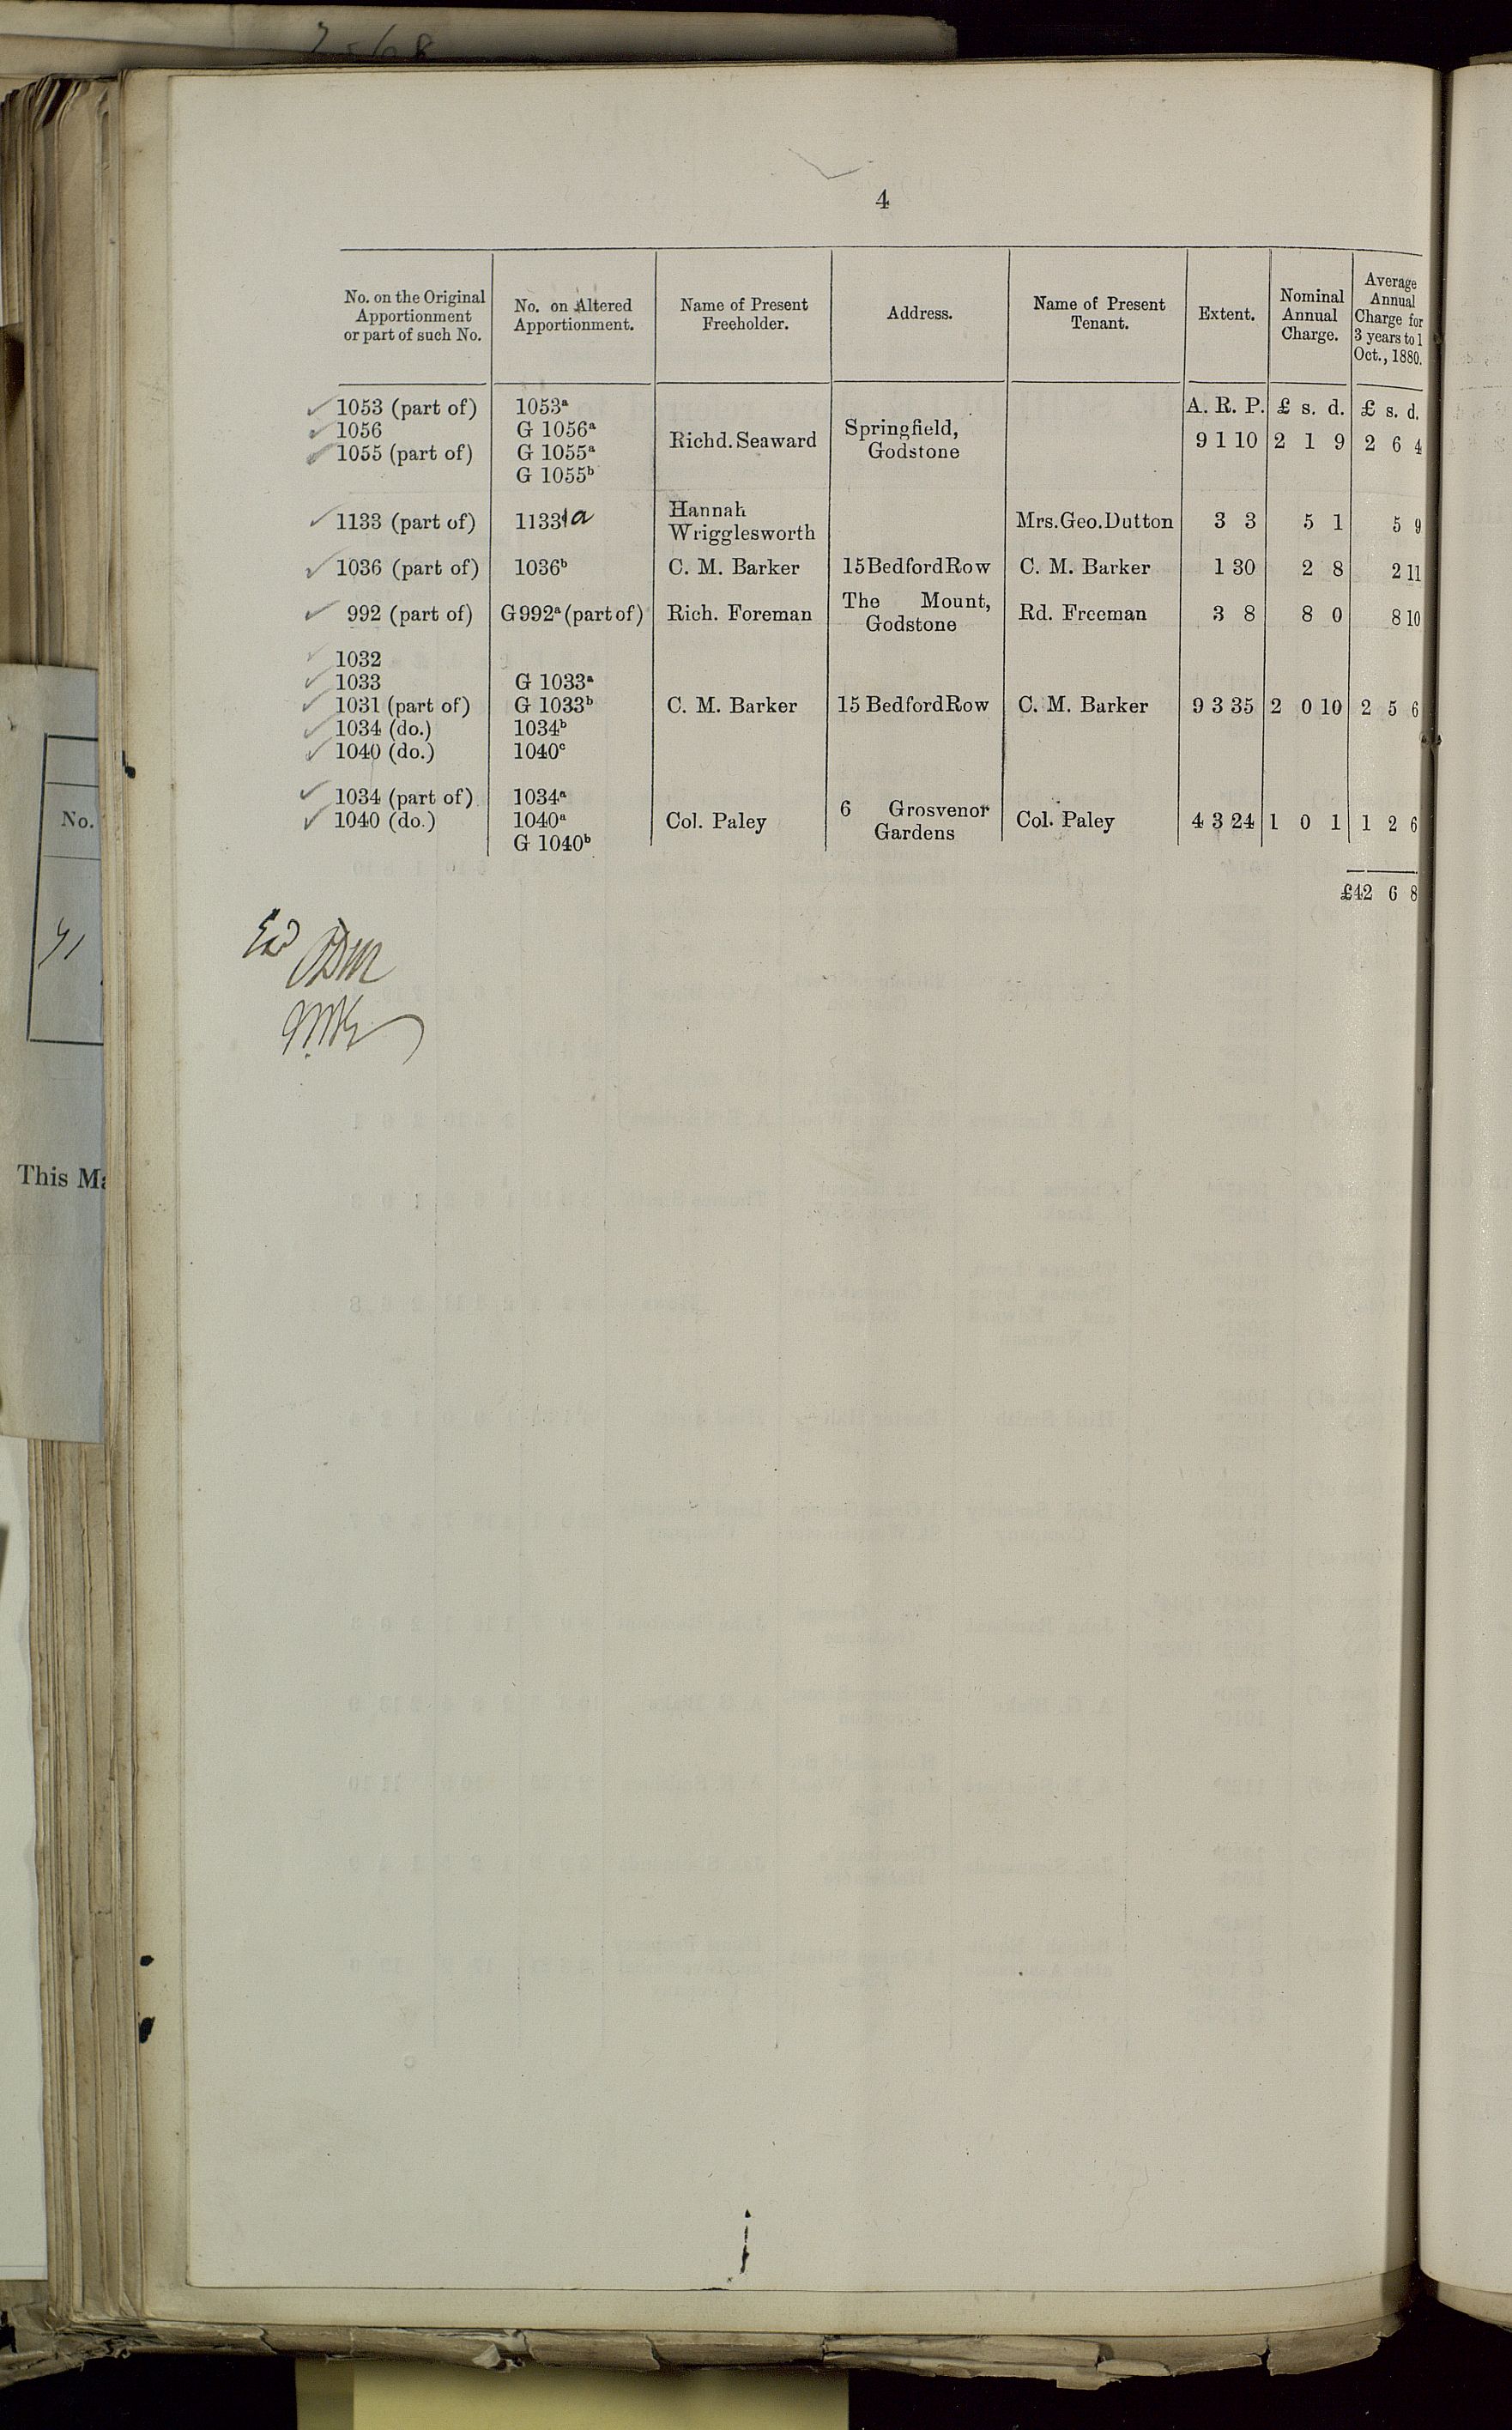 4
No. on the Original Apportionment or part of such No. | No. on Altered Apportionment. | Name of Present Freeholder. | Address. | Name of Present Tenant. | Extent. | Nominal Annual Charge. | Average Annual Charge for 3 years to 1 Oct., 1880.
A. R. P. £ s. d. £ s. d.
1053 (part of) 1053ᵃ
1056 G 1056ᵃ
1055 (part of) G 1055ᵃ Richd. Seaward Springfield, Godstone 9 1 10 2 1 9 2 6 4
G 1055ᵇ
1133 (part of) 1133a Hannah Wrigglesworth Mrs. Geo. Dutton 3 3 5 1 5 9
1036 (part of) 1036ᵇ C. M. Barker 15 Bedford Row C. M. Barker 1 30 2 8 2 11
992 (part of) G 992ᵃ (part of) Rich. Foreman The Mount, Godstone Rd. Freeman 3 8 8 0 8 10
1032
1033 G 1033ᵃ
1031 (part of) G 1033ᵇ C. M. Barker 15 Bedford Row C. M. Barker 9 3 35 2 0 10 2 5 6
1034 (do.) 1034ᵇ
1040 (do.) 1040ᶜ
1034 (part of) 1034ᵃ
1040 (do.) 1040ᵃ Col. Paley 6 Grosvenor Gardens Col. Paley 4 3 24 1 0 1 1 2 6
G 1040ᵇ
£42 6 8
No.
This Ma